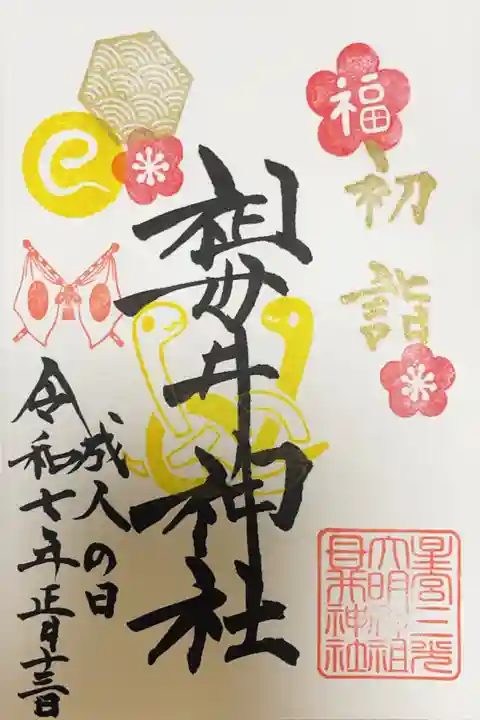 福
初詣
祖母井神社
成人の日
令和七年正月十三日
星宮三光
大明神祖
母井神社